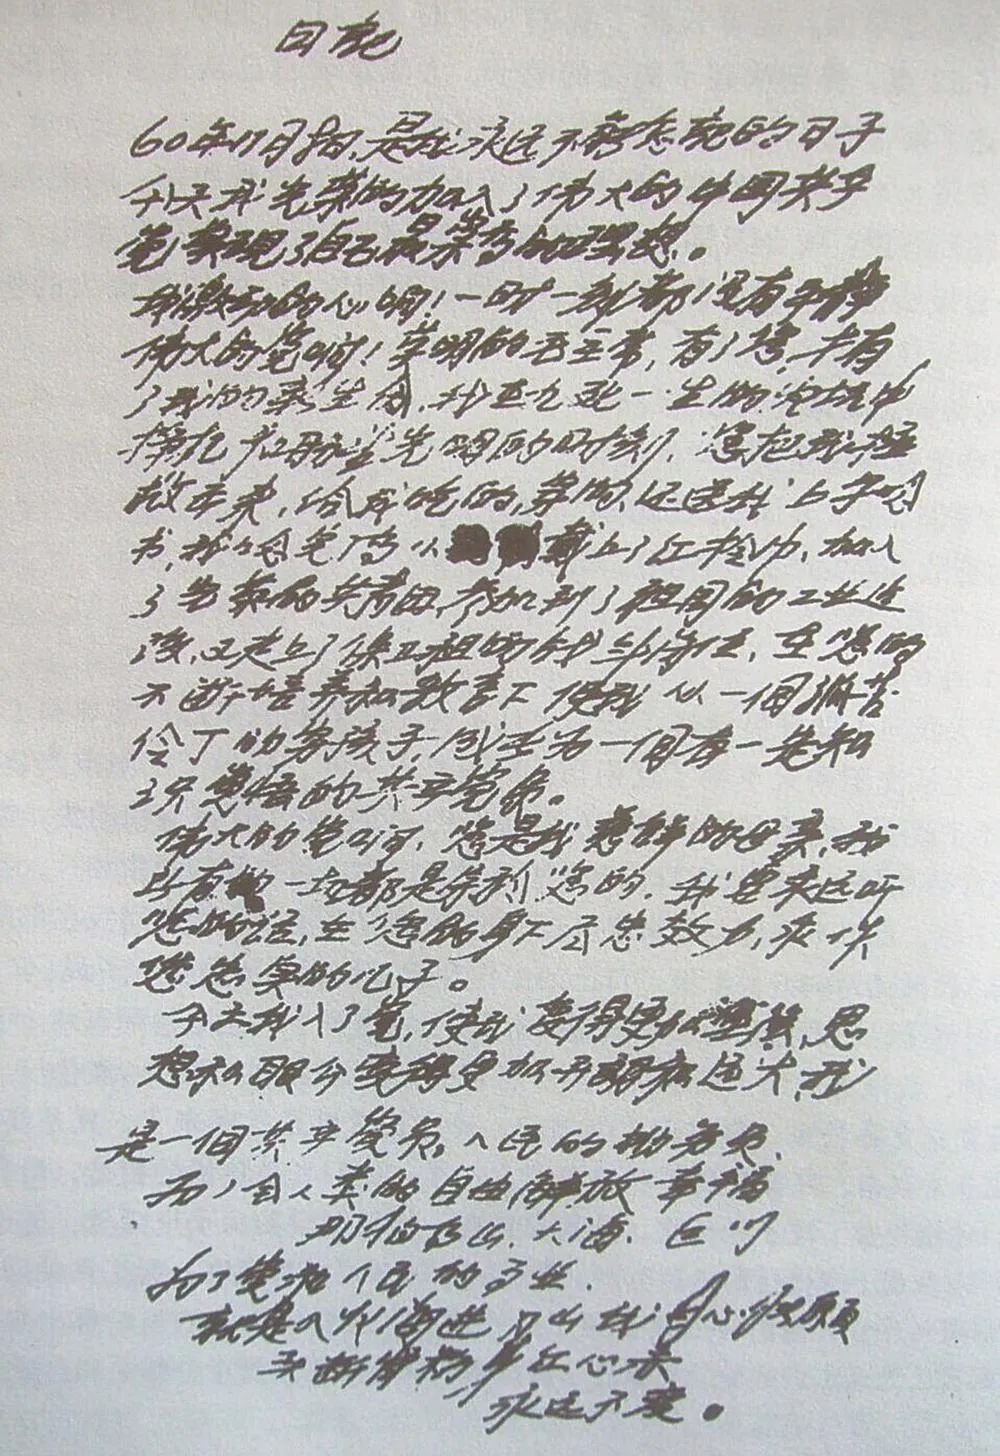 日记
60年11月8日，是我永远不能忘记的日子
今天我光荣的加入了伟大的中国共产
党实现了自己最崇高的理想。
我激动的心啊！一时一刻都没有平静
伟大的党啊！英明的毛主席，有了您，才有
了我的新生命，我在九死一生的火坑中
挣扎和盼望光明的时刻，您把我拯
救出来，给我吃的，穿的，还送我上学念
书，我念完了高小 戴上了红领巾，加入
了光荣的共青团，参加到了祖国的工业建
设，又走上了保卫祖国的战斗岗位，在您的
不断培养和教育下 使我从一个孤苦
伶丁的穷孩子，成长为一个有一定知
识觉悟的共产党员。
伟大的党啊，您是我慈祥的母亲，我
所有的一切都是属于您的，我要永远听
您的话，在您的身下尽忠效力，永作
您忠实的儿子。
今天我入了党，使我变得更加坚强，思
想和眼界变得更加开朗和远大，我
是一个共产党员，人民的勤务员，
为了全人类的自由解放幸福
那怕高山、大海、巨川
为了党和人民的事业，
就是入火海进刀山我甘心情愿
头断骨粉身红心赤
永远不变。